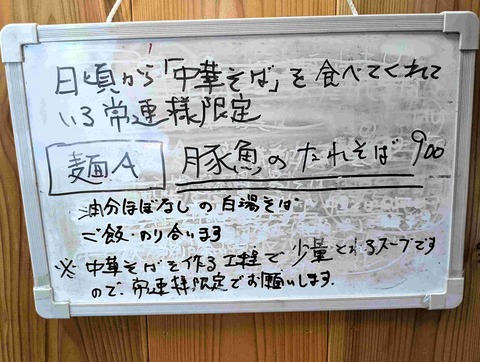 日頃から「中華そば」を食べてくれて
いる常連様限定
麺A 豚魚のたれそば 900
油分ほぼなしの白湯そば
ご飯・のり合います
※中華そばを作る工程で少量とれるスープです
ので、常連様限定でお願いします。